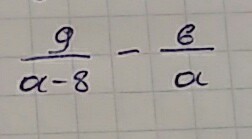 9/(a-8) - 6/a